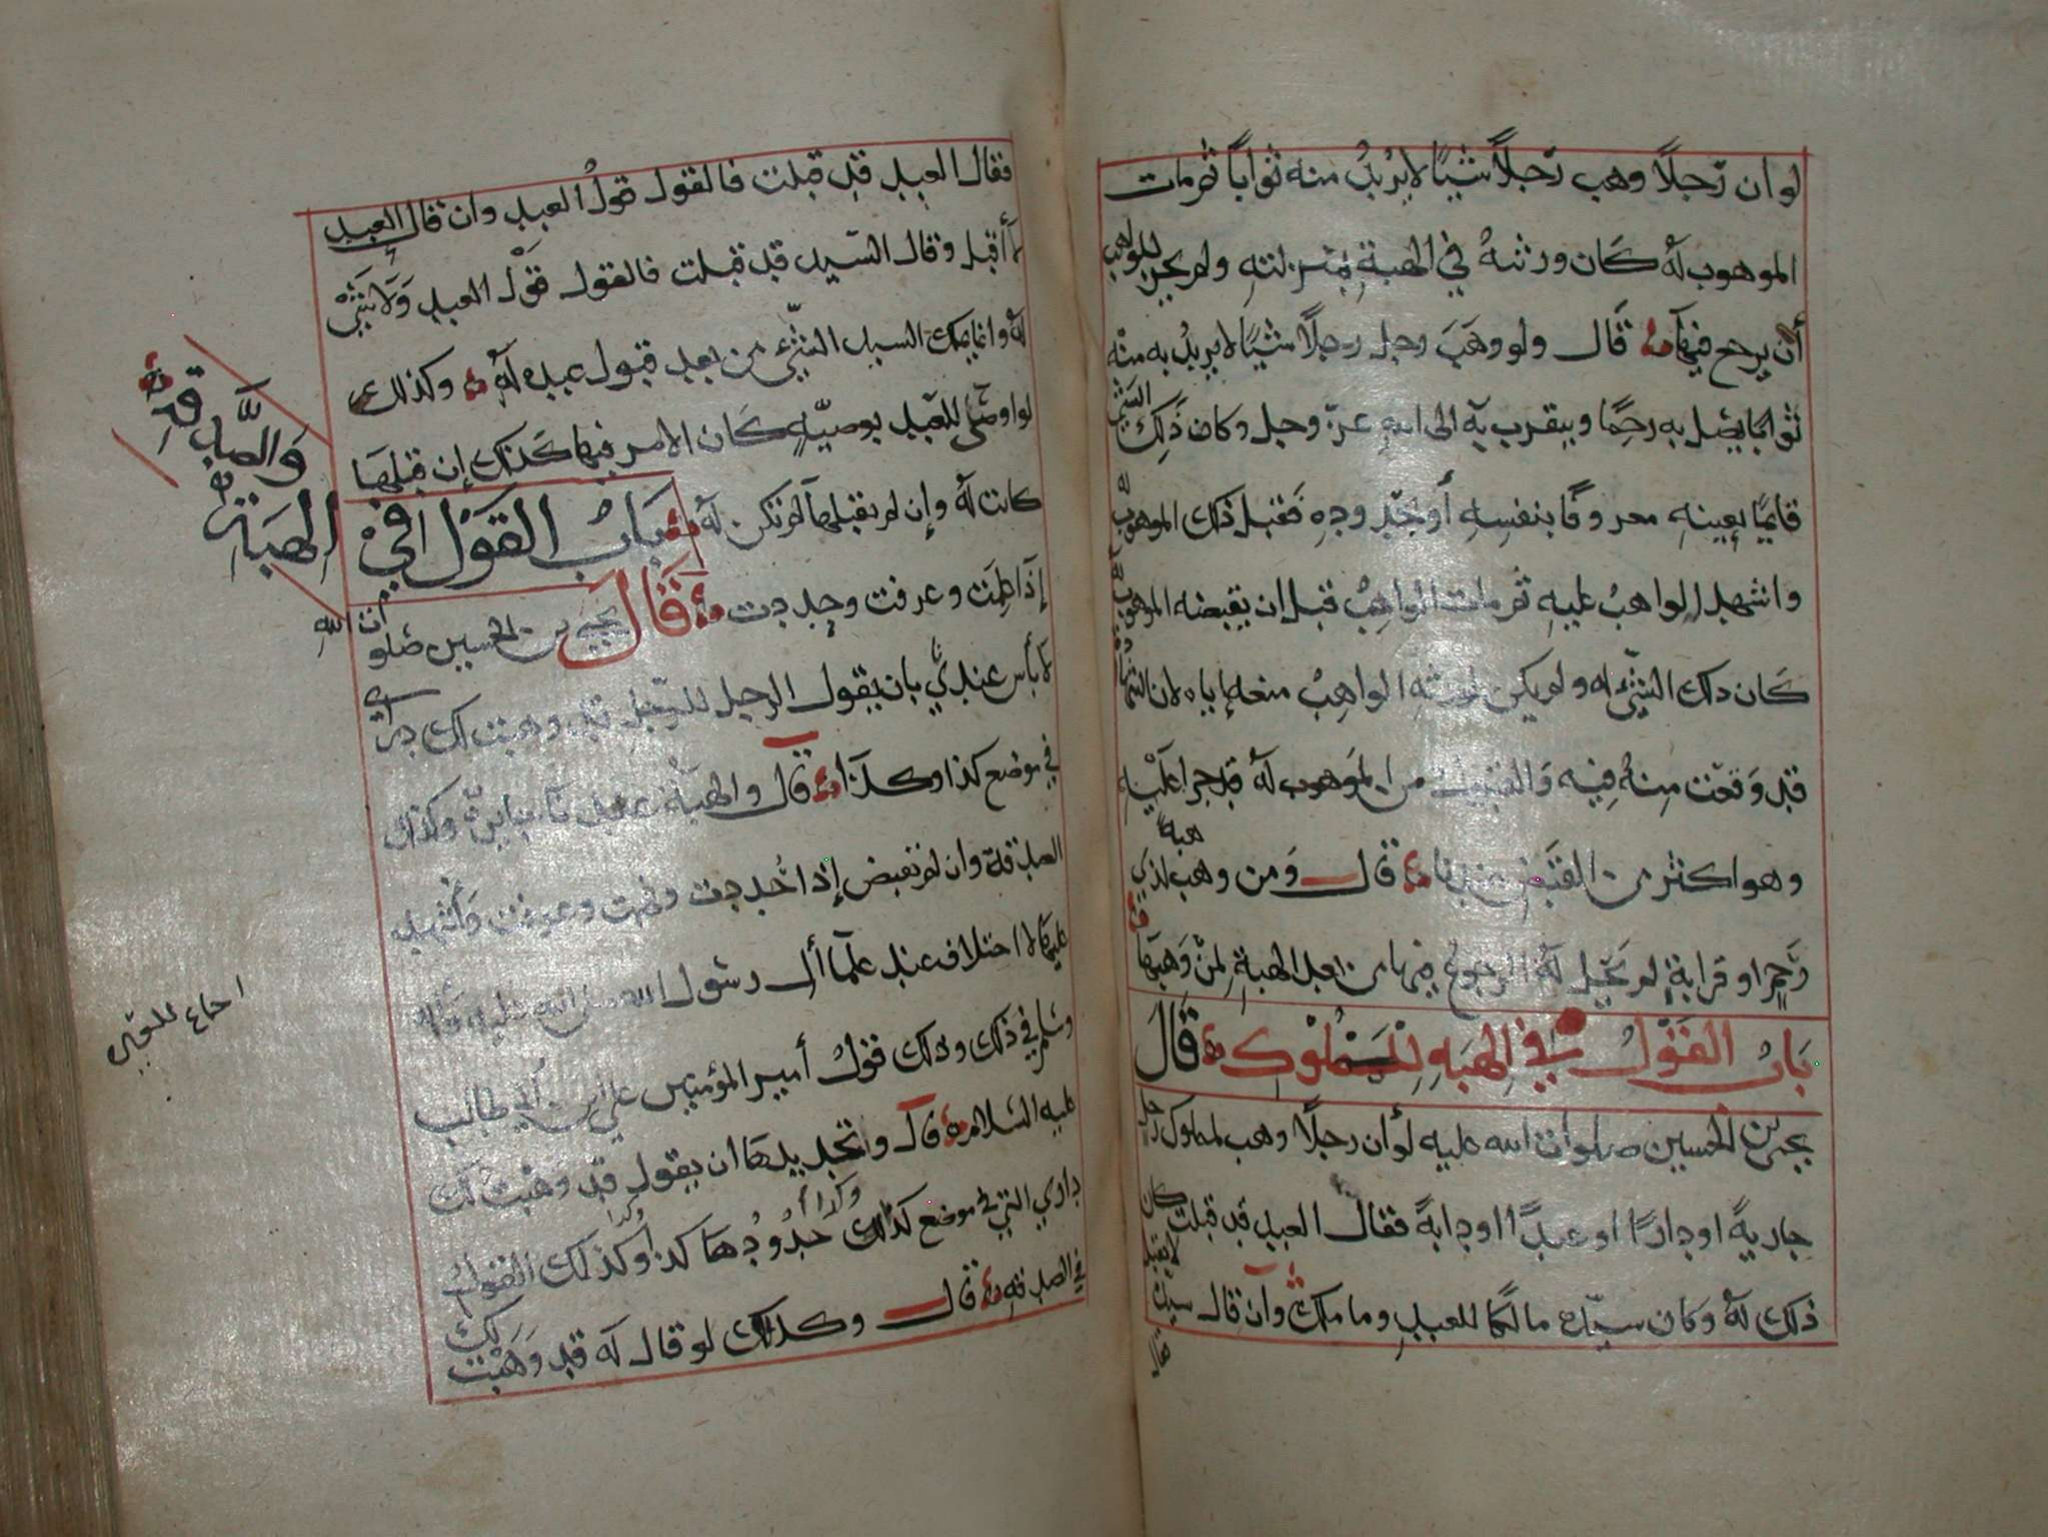 لو ان رّجلاً وهب رّجلاً شيًا لا يُريدُ منه ثوابًا ثم مات
الموهوب لهُ كان ورثتهُ في الهبةِ بمنزلتهِ ولم يجز للواهب
أن يرجع فيها قال ولو وهَبَ رجل رجلاً شيًا لا يريدُ به منْه
ثوابًا يصل به رحِمًا ويتقرب به الى اللهِ عزّ وجل وكان ذَلِكَ الشي
قايمًا بعينهِ معروفًا بنفسِهِ أو بحدودِهِ فقبل ذلك الموهوب له
واشهد الواهبُ عليهِ ثم مات الواهِبُ قبل ان يقبضه الموهوب له
كَان ذلك الشّي له ولم يكن لورثه الواهِبُ منعه إياه لان الشهادة
قد وَقعَت مِنهُ فِيه وَالقبول من الموهوب لهُ قد جرا عليْهِ
وهو اكثر من القبْضِ عندنا قال وَمن وهب هبة لذي
رَّحِمٍ او قرابةٍ لم تحِل لهُ الرجوعُ فيها من بعد الهبةِ لمنْ وَهبهَا
بَابُ القَوْلُ في الهبَهِ للمَمْلُوكِ قَالَ
يحيى بن الحسين صلوات الله عليه لو أن رجلاً وهب لمملوك رجل
جاريةً او دارًا او عبدًا او دابةً فقال العبد قد قبلت كان
ذلك لهُ وكان سيّده مالكًا للعبدِ وما ملك وَان قال سيده لا يقبل
فقال العبد قد قبلت فالقول قولُ العبد وان قال العبد
لا أقبل وقال السّيد قد قبلت فالقول قوْل العبد وَلا شَيْ
لهُ وانما يملك السيد الشّي من بعد قبول عبده لهُ وكذلك
لو اوصَى للعبد بوصيّهٍ كَان الامر فيها كذلك إن قبلها
كانت لهُ وإن لم يقبلها لم تكن لهُ بَابُ القَوْل في الهبَةِ
وَالصَّدقةِ
إذا علِمَت وعرفت وحددت قَالَ يحيى بن الحسين صلوات الله
لا بأس عندي بان يقول الرجل للرّجل قد وهبت لك داري
في موضع كذا وكذا قال والهبَة عندنا جايزة وكذلك
الصدقة وان لم تقبض إذا حُددت وفهمت وعرفت وَأشهد
عليها لا اختلاف عند علمآ أل رسول الله صلى الله عليه وأله
وسلم في ذلك وذلك قولُ أمير المؤمنين علي ابن أبي طالب
عليه السّلام قال وتجديدها ان يقول قد وهبت لك
داري التي في موضع كذا وكذا حُدُودُها كذا وكذا وكذلك القولُ
في الصدقهِ قال وكذلك لو قال له قد وَهَبْت لك